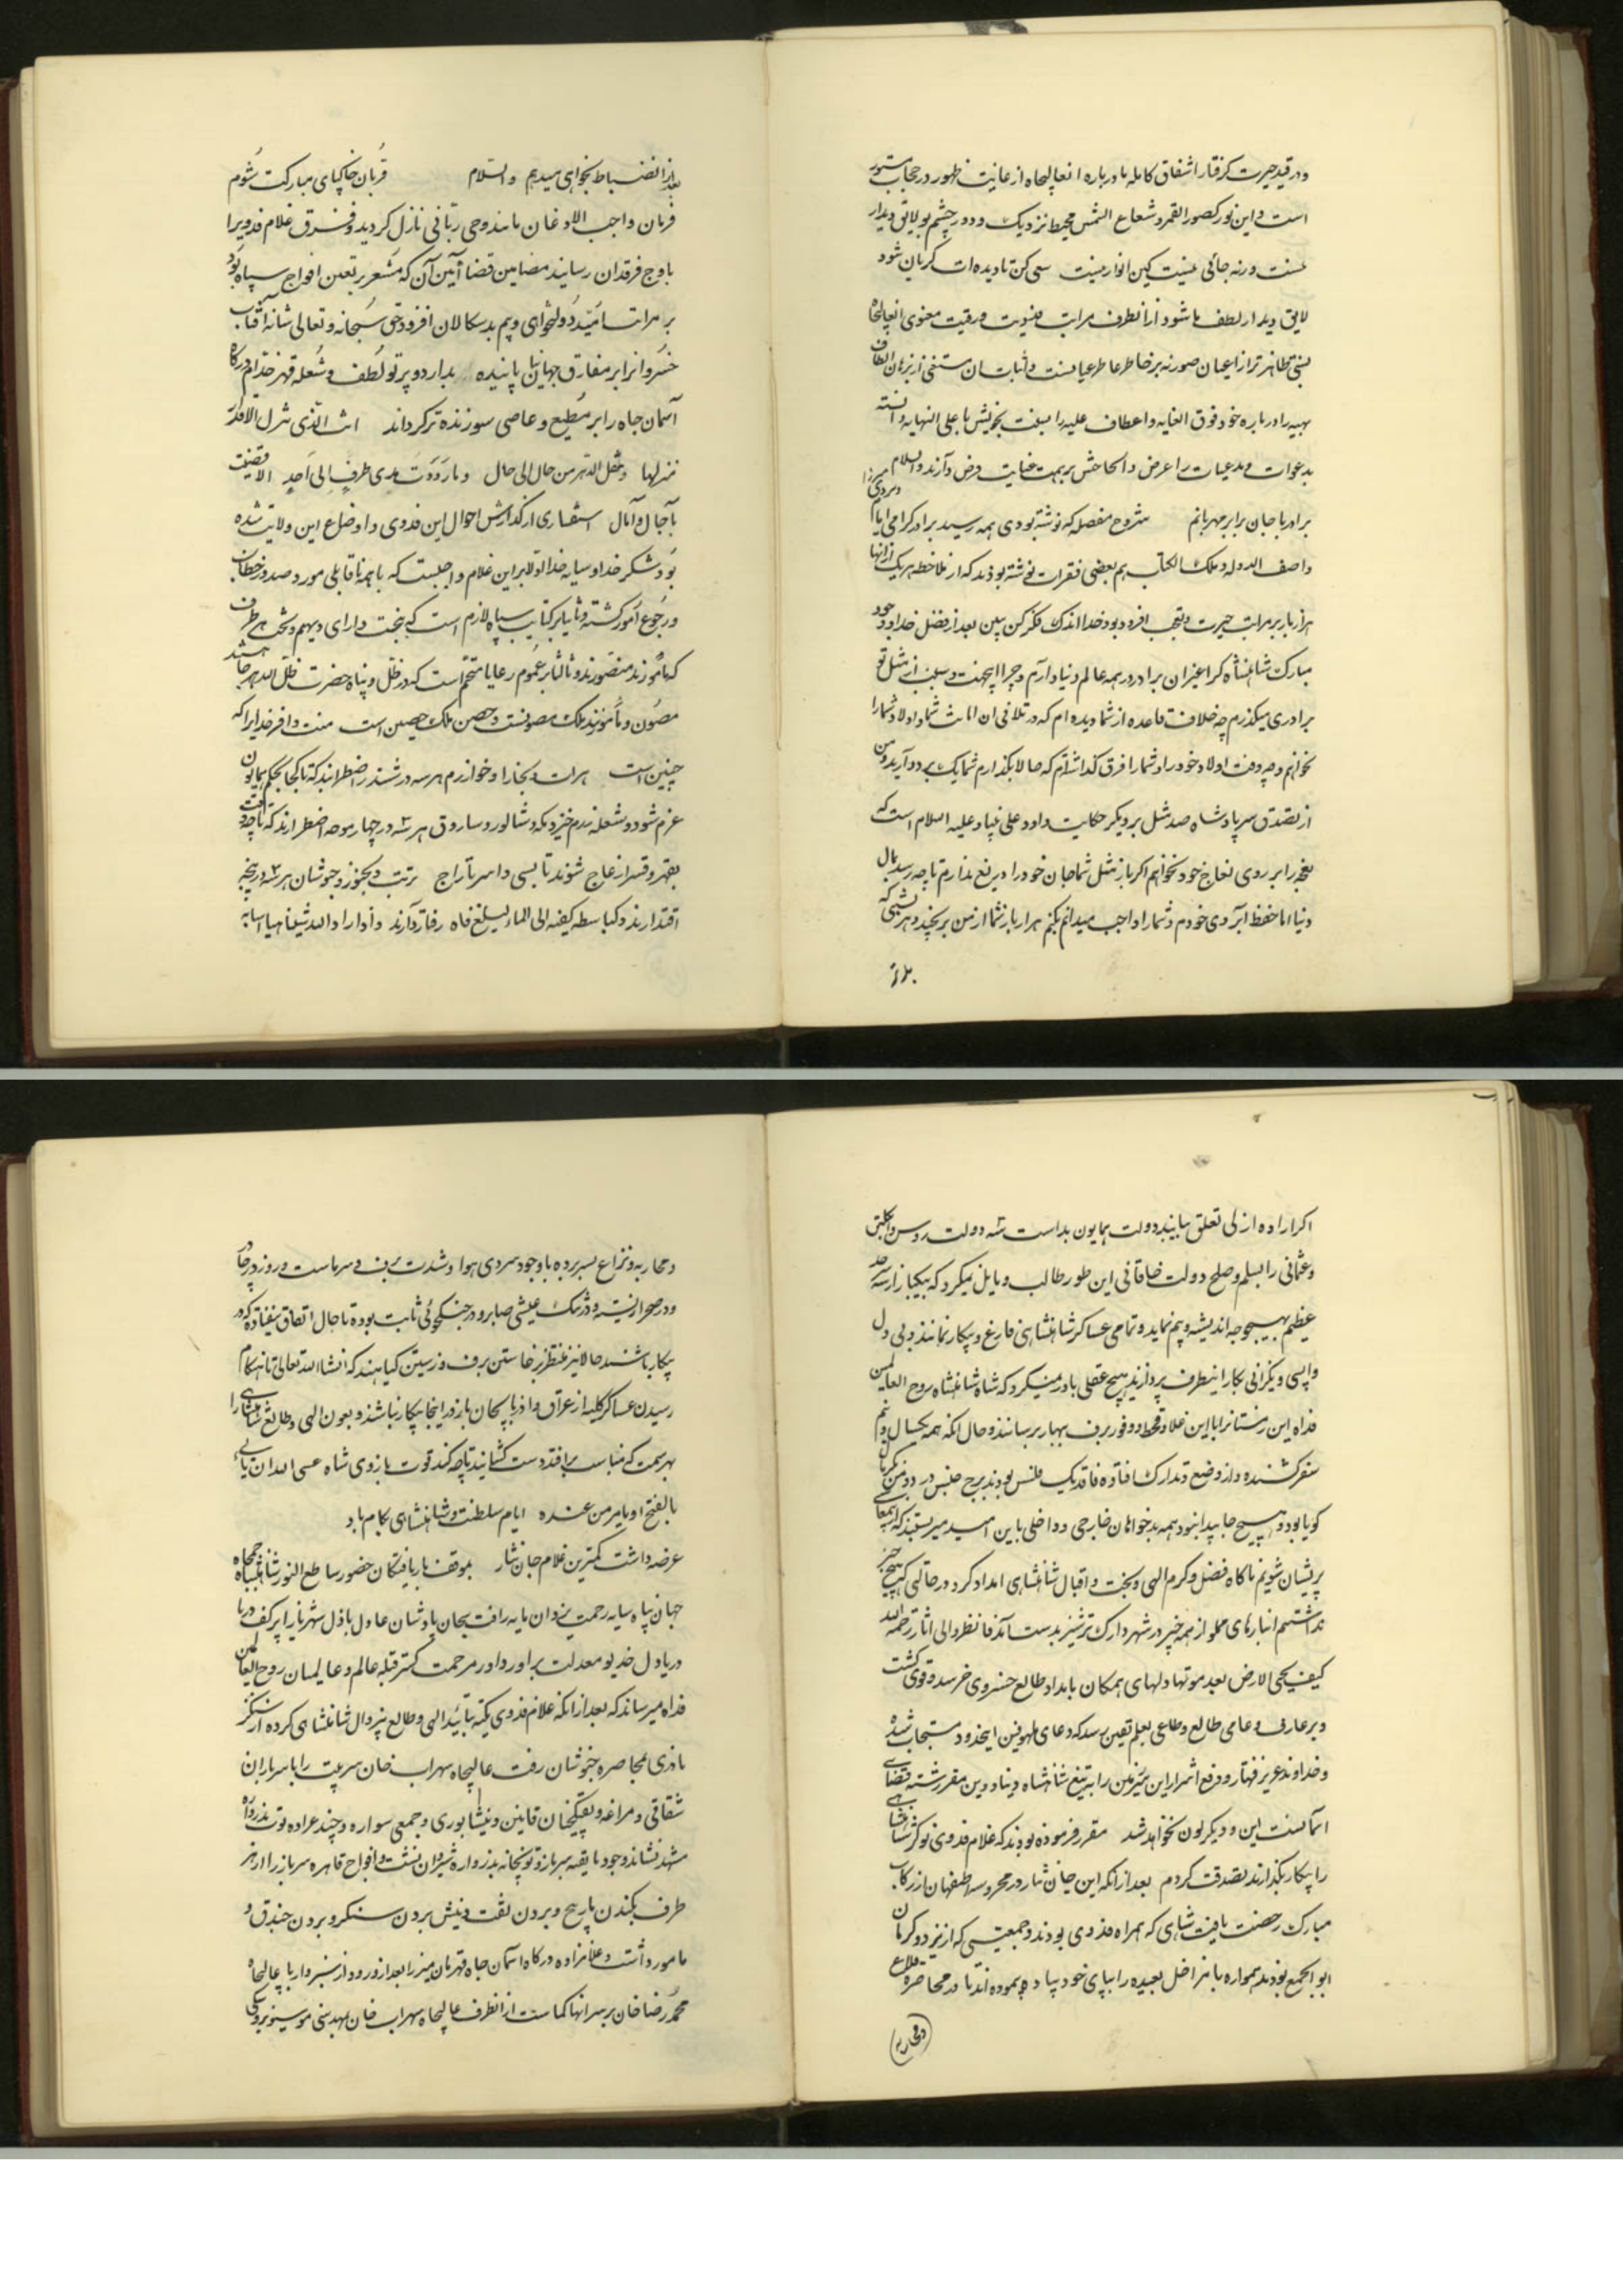 و در قید حیرت گرفتار اشفاق کامله ما درباره انعالیجاه از غایت ظهور در حجاب مستور
است و این نور کصور القمر و شعاع الشمس محیط نزدیک و دور چشم بو لایق دیدار
نیست ورنه جائی نیست کین انوار نیست سعی کن تا دیده ات گریان شود
لایق دیدار لطف ما شود از انطرف مراتب فدویت و رقیت معنوی انعالیجاه
بر خاطر عاطر عیانست و اثبات ان مستغنی از برهان الطاف
بهیه را درباره خود فوق الغایه و اعطاف علیه را نسبت بخویش باعلی النهایه دانسته
مدعیات را عرض و انجاحش بر همت عنایت فرض دارند والسلام
برادر با جان برابر مهربانم مشروح مفصله که نوشته بودی همه رسید برادر گرامی ایام
واصف الدوله و ملک الکتاب هم بعضی فقرات نوشته بودند که از ملاحظه هریک از انها
هزار بار بر مراتب حیرت و تعجب افزود بود خدا اندک فکر کن ببین بعد از فضل خدا و وجود
مبارک شاهنشاه کرا غیر ان برادر در همه عالم دنیا دارم و چرا بیجهت و سبب از مثل تو
برادری میگذرم چه خلاف قاعده از شما دیده ام که در تلافی ان اناث شما و اولاد شمارا
نخواهم و چه وقت اولاد خود را و شما را فرق گذاشته ام که حالا بگذارم شما یک بردارید و من
از تصدق سر پادشاه صد مثل بر دیگر حکایت داود علی نبینا و علیه السلام است که
بر روی نعاج خود نخواهم اگر باز مثل شما جان خود را دریغ ندارم تا چه رسد بمال
دنیا اما حفظ آبروی خودم و شما را واجب میدانم بکنم هزار بار شما از من برنجید و هر نسبتی که
بعد از انضباط بخواهی میدهیم والسلام قربان خاکپای مبارکت شوم
فرمان واجب الاذعان مانند وحی ربانی نازل گردید و فرق غلام فدویرا
باوج فرقدان رسانید مضامین قضا آیین آن که مشعر بر تعین افواج سپاه بود
بر مراتب امید دولتخواهی و بیم بدسکالان افزود حق سبحانه و تعالی شانه آفتاب
خسروانرا بر مفارق جهانیان پاینده بدارد و پرتو لطف و شعله قهر خدام درگاه
آسمان جاه را بر مطیع و عاصی سوزنده تر گرداند انت الذی تنزل الاقدار
منزلها و تنقل الدهر من حال الی حال و ما رددت مدی طرف الی احد الا قضیت
بآجال و آمال استفساری از گذارش احوال این فدوی و اوضاع این ولایت شده
بود شکر خدا و سایه خدا اولا بر این غلام واجبست که با همه ناقابلی مورد صدور خطاب
و رجوع امور گشته و ثانیا بر کتایب سپاه لازم است که ببخت دارای دیهیم و تخت بهر طرف
که مامورند منصورند و ثالثا بر عموم رعایا متحتم است که در ظل و پناه حضرت ظل الله هرجا هستند
مصون و مأمونند ملک مصونست و حصن ملک حصین است منت وافر خدایرا که
چنین است هرات و بخارا و خوارزم هر سه در ششدر اضطرابند که تا کجا بحکم همایون
عزم شود و شعله رزم خیزد میکه و نشالور و ساروق هر سه در چهار موجه اضطرارند که تا چه وقت
بقهر و قسر ازعاج شوند تا بسبی و اسر تاراج تربت و بجنورد و خبوشان هر سه در پنجه
اقتدارند و کباسط کفیه الی الماء لیبلغ فاه رفتار دارند و اذا اراد الله شیئا هیأ اسبابه
اگر اراده ازلی تعلق بتایید دولت همایون نداشت سه دولت روس و انگلیس
و عثمانی را بسلم و صلح دولت خاقانی این طور طالب و مایل نمیکرد که بیکبار از سه سرحد
عظیم بهیچوجه اندیشه و بیم نماید و تمامی عساکر شاهنشاهی فارغ و بیکار نمانند و بی دل
واپسی و نگرانی بکار اینطرف پردازند هیچ عقلی باور نمیکرد که شاه شاهنشاه روح العالمین
فداه این زمستانرا با این غلا و قحط و وفور برف ببهار برسانند و حال انکه همه یکسال و نیم
سفر کشیده و از وضع و تدارک افتاده فاقد یک فلس بودند برج جنس در دو من کرباس
گویا بود و هیچ جا پیدا نبود همه بدخواهان خارجی و داخلی باین امید میزیستند که
پریشان شویم ناگاه فضل و کرم الهی و بخت و اقبال شاهنشاهی امداد کرد و در حالتی که هیچ چیز
نداشتیم انبارهای مملو از همه چیز در شهر و ارک ترشیز بدست آمد فانظر والی اثار رحمه الله
کیف یحیی الارض بعد موتها دلهای همگان بامداد طالع خسروی خرسند و قوی گشت
و بر عارف و عامی طالع و طاعی بعلم یقین رسید که دعای ملهوفین ایخدود مستجاب شده
و خداوند عزیز قهار و دفع اشرار این سرزمین را به تیغ شاهنشاه دنیا و دین مقرر شته قضای
آسمانست این و دیگرگون نخواهد شد مقرر فرموده بودند که غلام فدوی نوکر شاهنشاهی
را بیکار نگذارند تصدقت گردم بعد از انکه این جان نثار در محروسه اصفهان از رکاب
مبارک رخصت یافت سپاهی که همراه فدوی بودند و جمعیتی که از یزد و کرمان
ابو الجمع بودند همواره با مراحل بعیده را بپای خود پیاده پیموده اند تا در محاصره قلاع
و محاربه
و محاربه و نزاع بسر برده با وجود سردی هوا و شدت برف و سرماست و روز در خارج
و در صحرا زیسته و در تنگ عیشی صابر و در جنگجوئی ثابت بوده تا حال اتفاق نیفتاده که در
بیکار باشند حالا نیز منتظر برخاستن برف و رستن گیاهند که انشاالله تعالی تا هنگام
رسیدن عساکر کلیه از عراق و اذربایجان باز در اینجا بیکار نباشند و بعون الهی و طالع شاهنشاهی
بهر سمت که مناسب برافتد دست گشایند تا چه کند قوت بازوی شاه عسی الله ان یاتی
بالفتح او بامر من عنده ایام سلطنت و شاهنشاهی بکام باد
عرضه داشت کمترین غلام جان نثار بموقف باریافتگان حضور ساطع النور شاهنشاه جمجاه
جهان پناه سایه رحمت یزدان مایه رافت سبحان پادشاه عادل باذل شهریار ابر کف دریا
دریا دل خدیو معدلت پرور داور مرحمت گستر قبله عالم و عالمیان روح العالمین
فداه میرساند که بعد از انکه غلام فدوی تکیه بتائید الهی و طالع بیزوال شاهنشاهی کرده از سنگر
نادری بمحاصره خبوشان رفت عالیجاه سهراب خان سرتیپ را با سربازان
شقاقی و مراغه و تفنگچیان قاینی و نیشابوری و جمعی سواره و چند عراده توپ بدروازه
مشهد نشاند و خود با بقیه سرباز و توپخانه بدروازه شیروان نشست و افواج قاهره سرباز را از هر
طرف بکندن مارپیچ و بردن نقب و پیش بردن سنگر و بردن خندق و
مامور داشت و غلامزاده درگاه آسمان جاه قهرمان میرزا بعد از ورود از سبزوار با عالیجاه
محمد رضا خان بر سر انها گماشت از انطرف عالیجاه سهراب خان مهندسی موسیو بروسکی